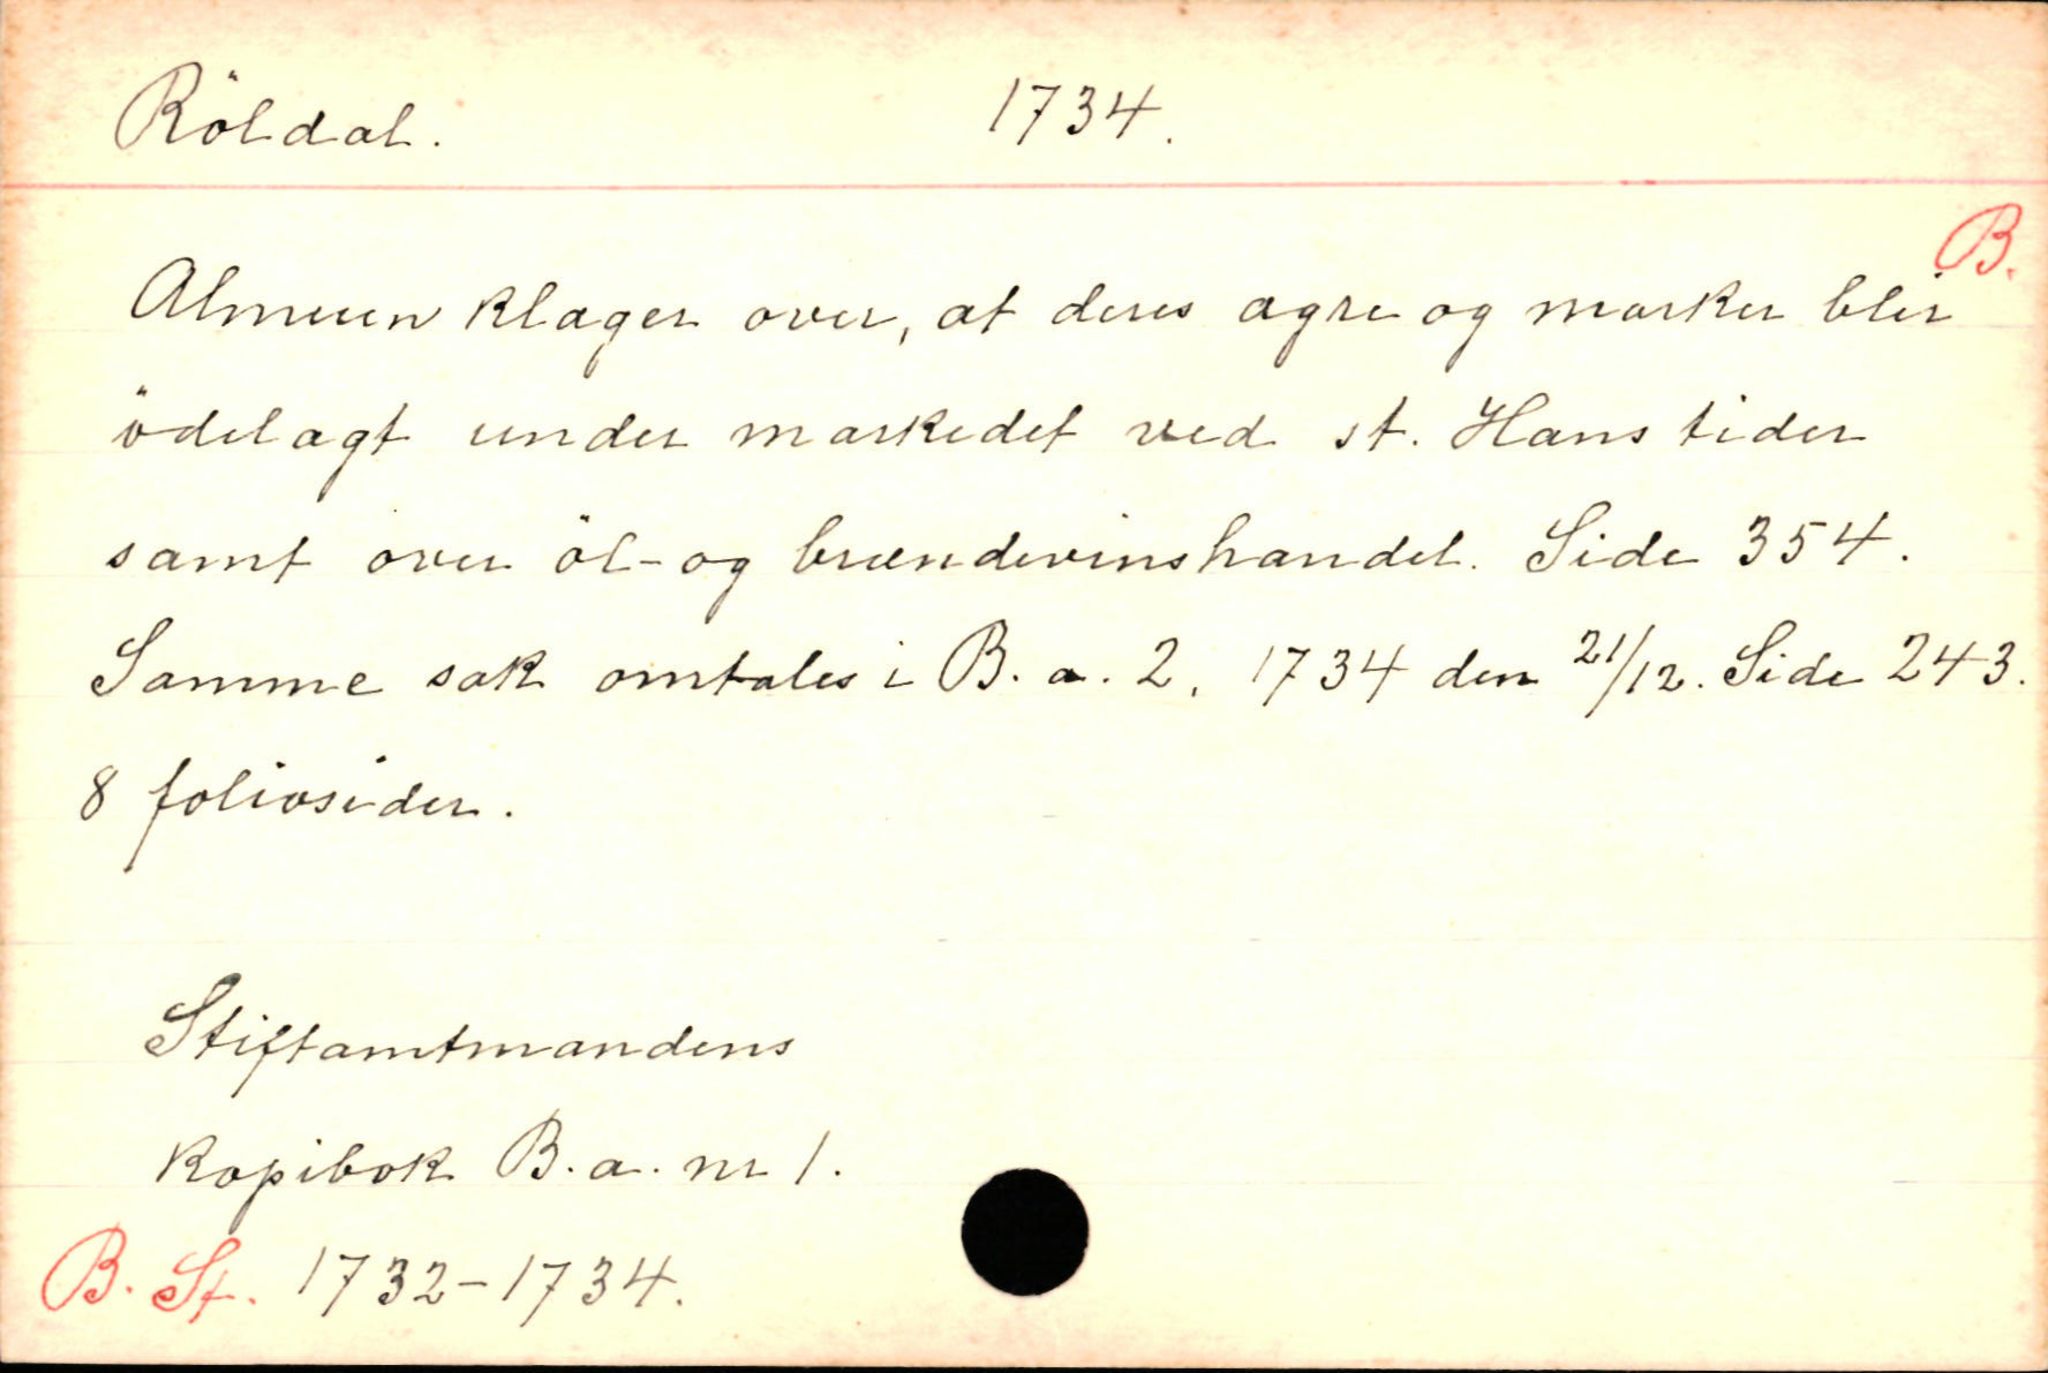 Röldal. 1734.
B.
Almuen klager over, at deres agre og marker blir
ödelagt under markedet ved st. Hans tider
samt over öl- og brændevinshandel. Side 354.
Samme sak omtales i B. a. 2, 1734 den 21/12. Side 243.
8 foliosider.
Stiftamtmandens
kopibok B. a. nr 1.
B. St. 1732-1734.